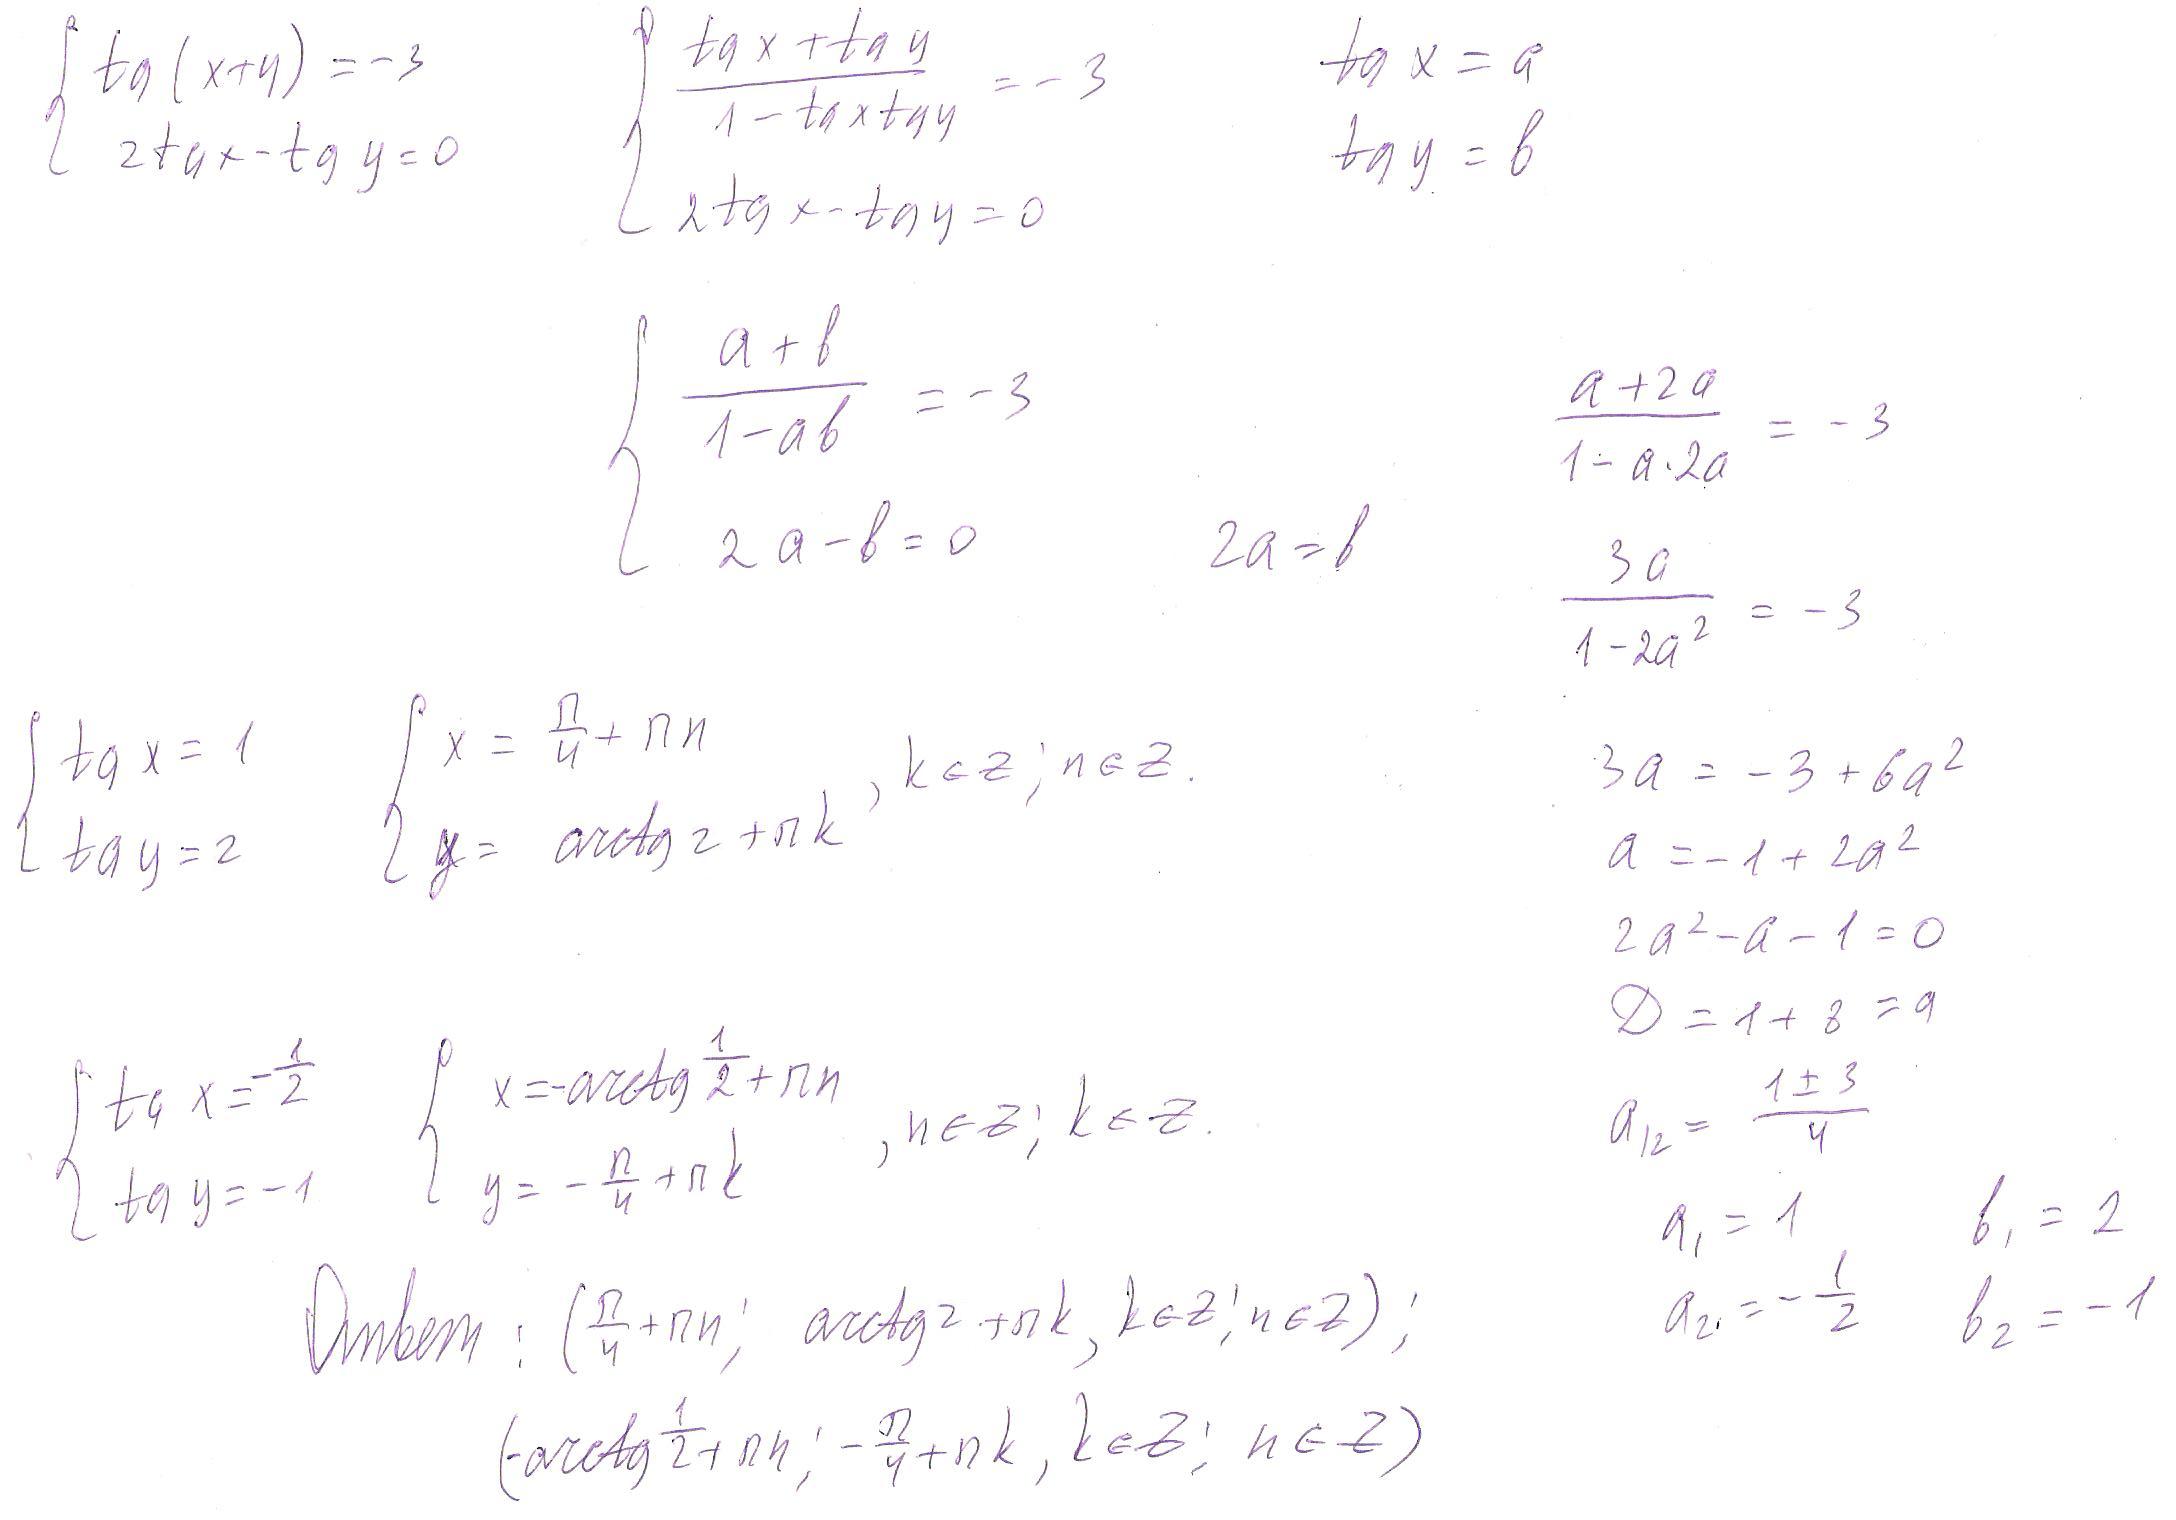 { tg (x+y) = -3
2tg x - tg y = 0
{ (tg x + tg y)/(1 - tg x tg y) = -3
2tg x - tg y = 0
tg x = a
tg y = b
{ (a + b)/(1 - ab) = -3
2a - b = 0
2a = b
(a + 2a)/(1 - a·2a) = -3
3a/(1 - 2a²) = -3
3a = -3 + 6a²
a = -1 + 2a²
2a² - a - 1 = 0
D = 1 + 8 = 9
a₁₂ = (1 ± 3)/4
a₁ = 1 b₁ = 2
a₂ = -1/2 b₂ = -1
{ tg x = 1
tg y = 2
{ x = π/4 + πn
y = arctg 2 + πk
, k ∈ Z; n ∈ Z.
{ tg x = -1/2
tg y = -1
{ x = -arctg 1/2 + πn
y = -π/4 + πk
, n ∈ Z; k ∈ Z.
Ответ: (π/4 + πn; arctg 2 + πk, k ∈ Z; n ∈ Z);
(-arctg 1/2 + πn; -π/4 + πk, k ∈ Z; n ∈ Z)